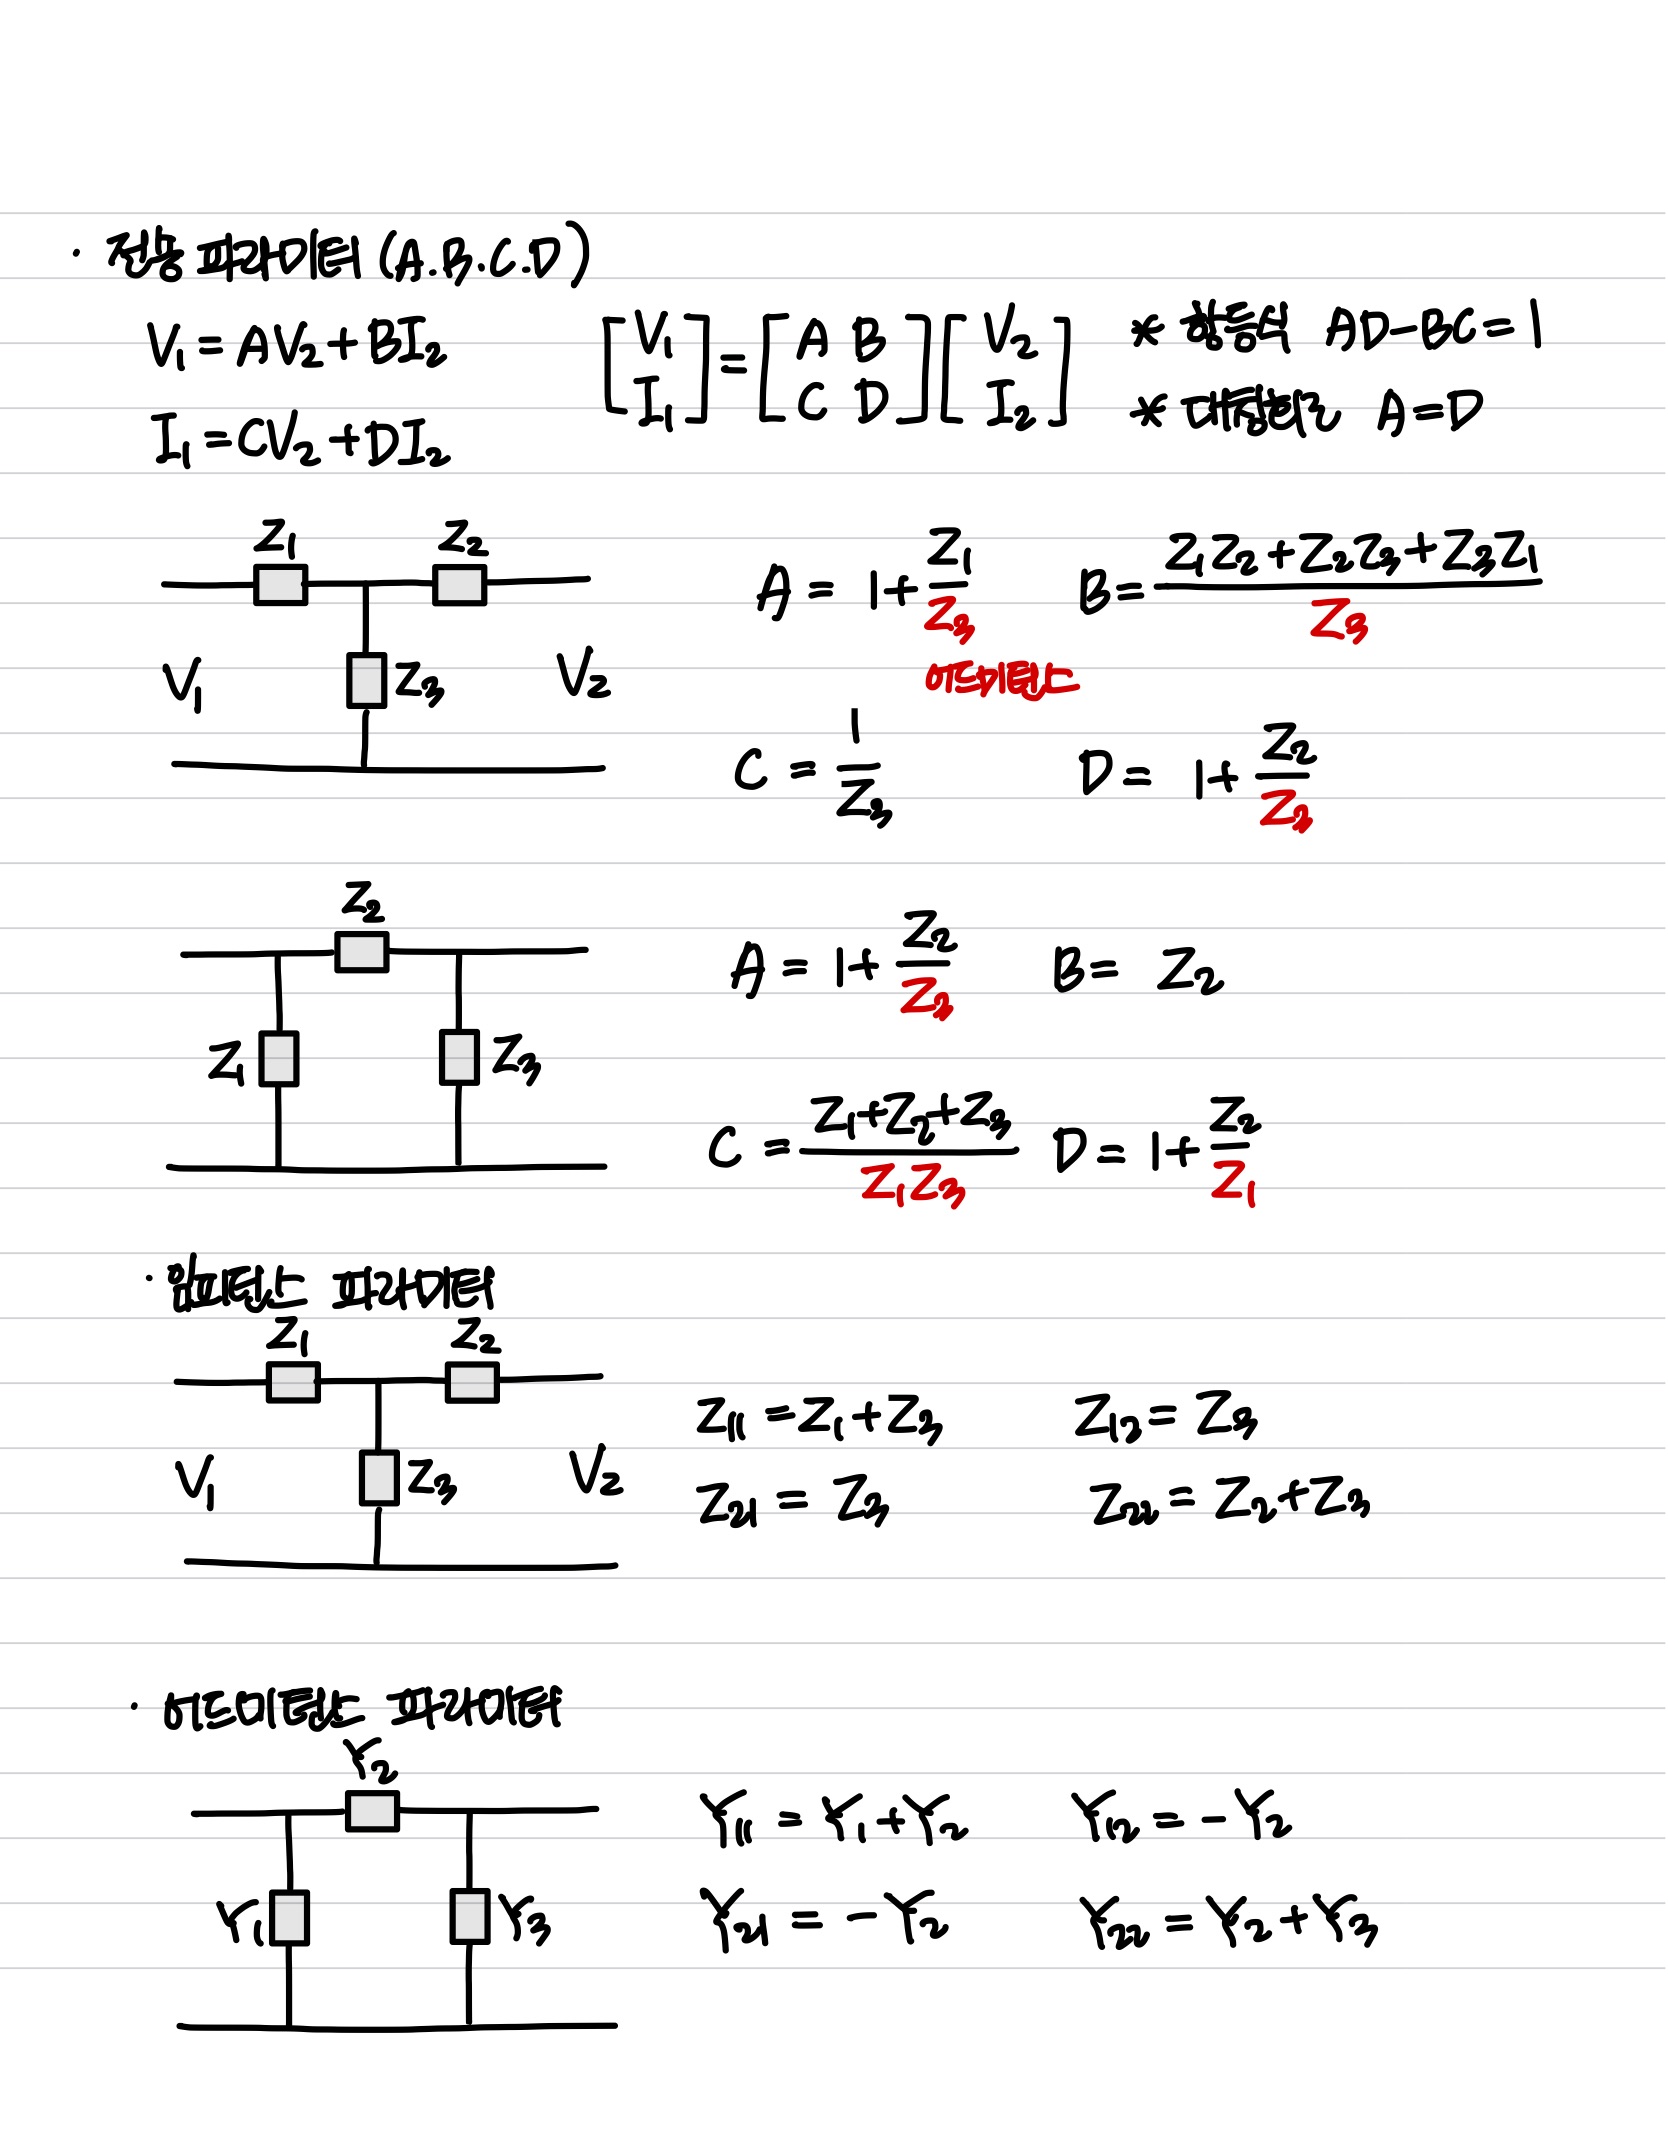 · 전송 파라미터 (A.B.C.D)
V₁ = AV₂ + BI₂
I₁ = CV₂ + DI₂
[V₁ I₁] = [A B C D] [V₂ I₂]
* 항등식 AD-BC=1
* 대칭회로 A=D
Z₁ Z₂
V₁ Z₃ V₂
A = 1+Z₁/Z₃ B = (Z₁Z₂+Z₂Z₃+Z₃Z₁)/Z₃
어드미턴스
C = 1/Z₃ D = 1+Z₂/Z₃
Z₂
Z₁ Z₃
A = 1+Z₂/Z₃ B = Z₂
C = (Z₁+Z₂+Z₃)/Z₁Z₃ D = 1+Z₂/Z₁
· 임피던스 파라미터
Z₁ Z₂
V₁ Z₃ V₂
Z₁₁ = Z₁+Z₃ Z₁₂ = Z₃
Z₂₁ = Z₃ Z₂₂ = Z₂+Z₃
· 어드미턴스 파라미터
Y₂
Y₁ Y₃
Y₁₁ = Y₁+Y₂ Y₁₂ = -Y₂
Y₂₁ = -Y₂ Y₂₂ = Y₂+Y₃